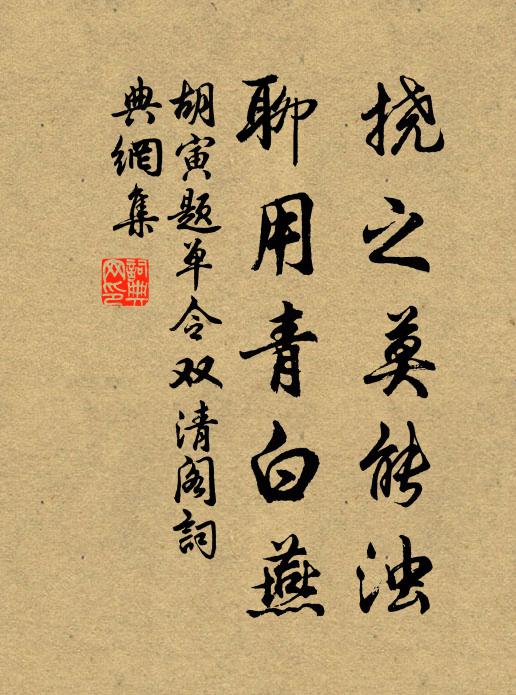 挠之莫能浊
聊用青白燕
胡寅题单令双清阁詞
典網集
詞典網印